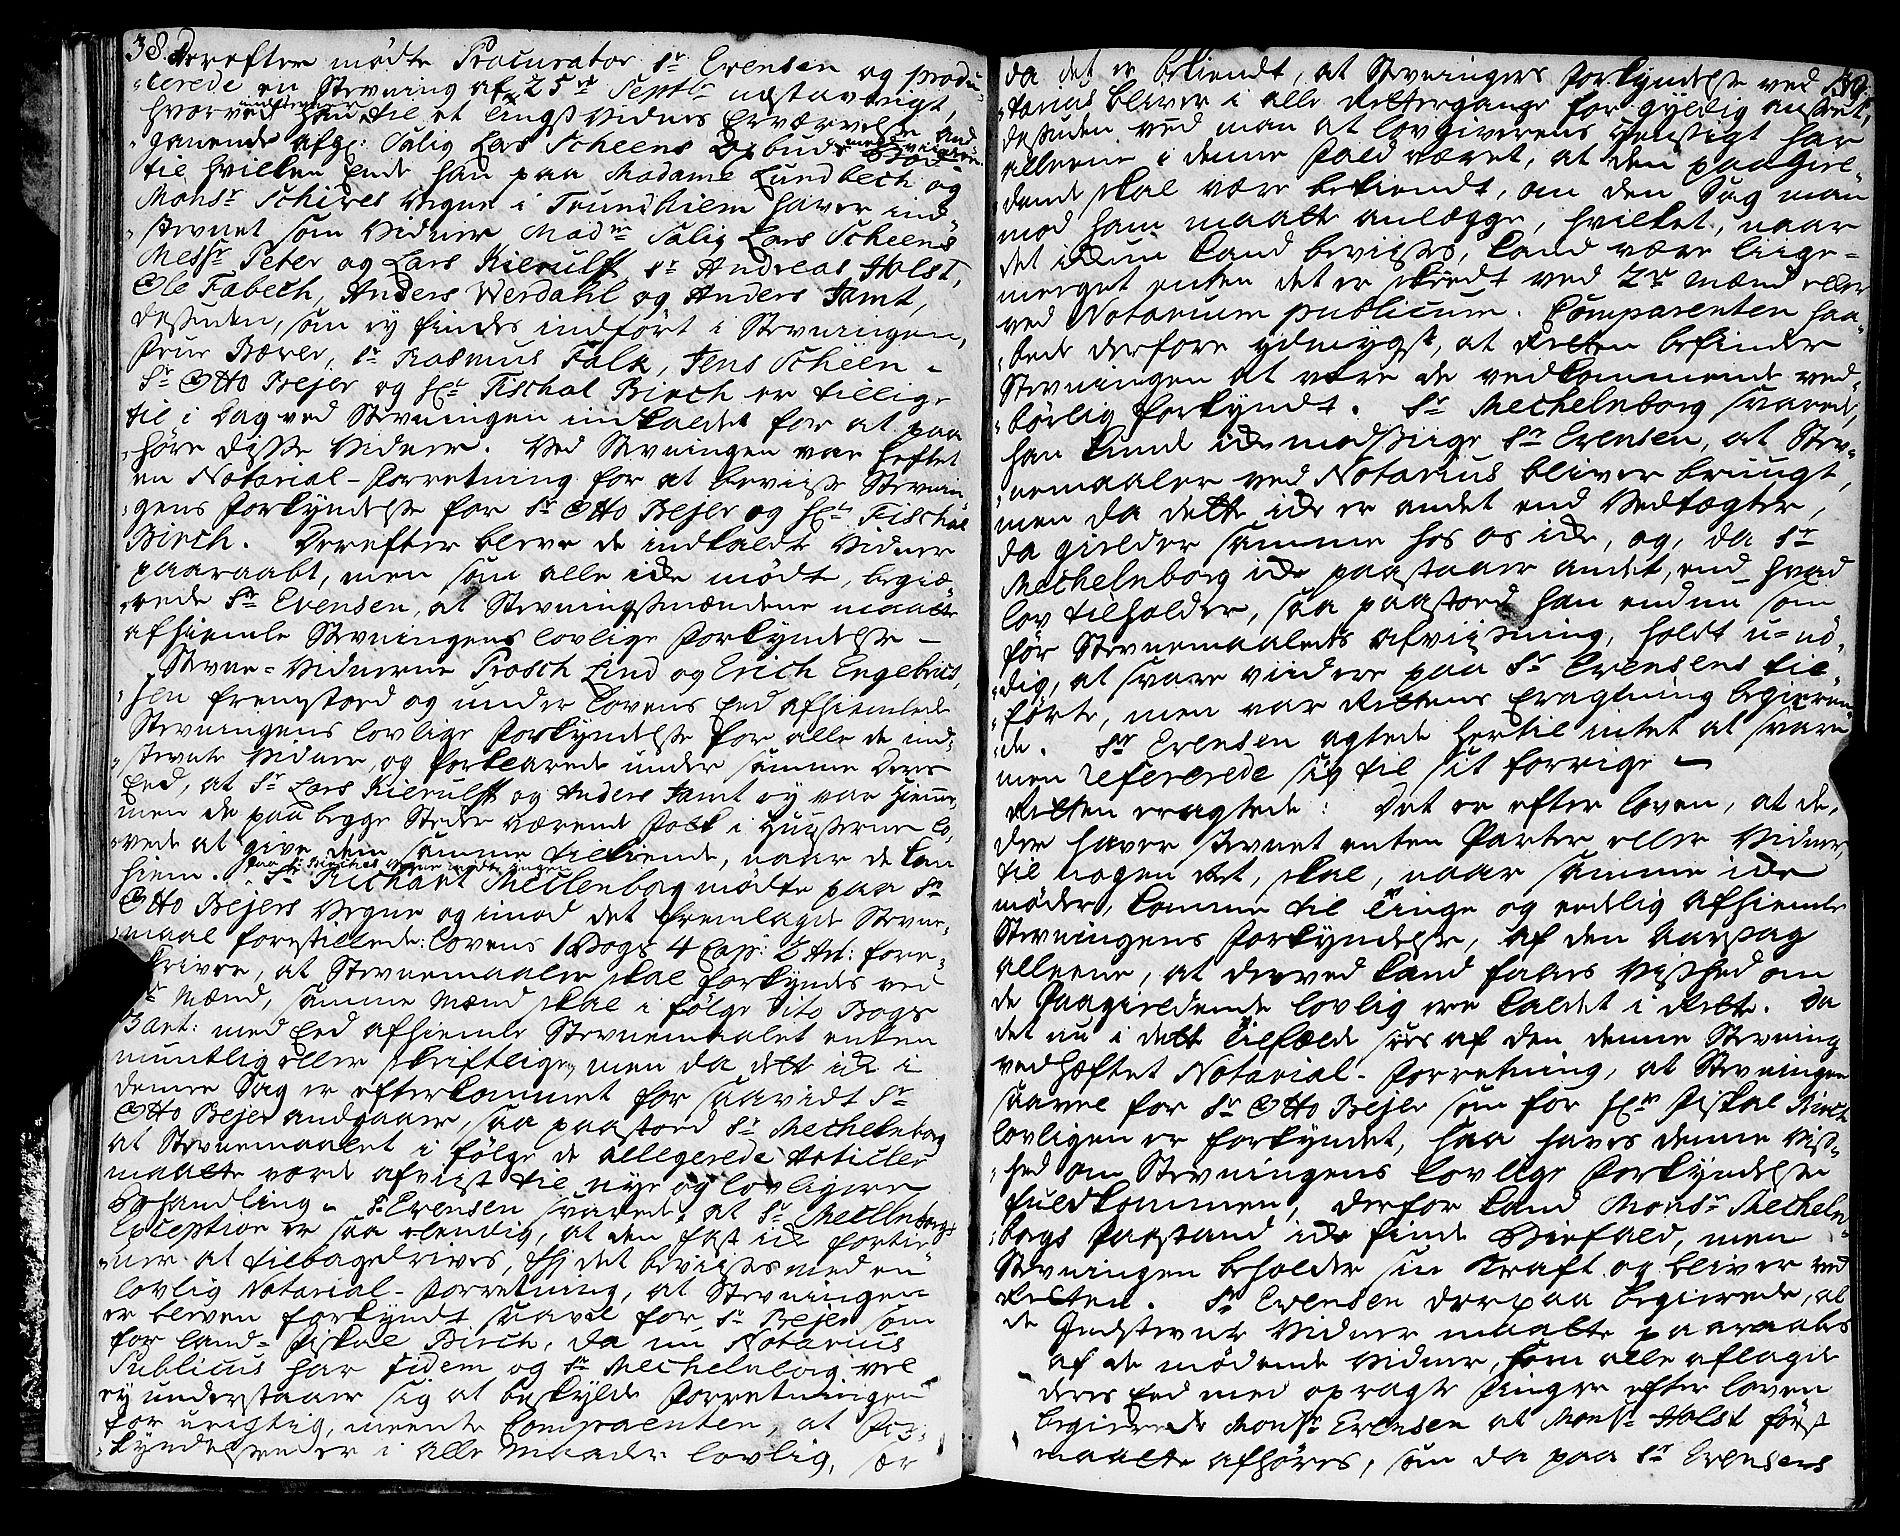 38.
Derefter mødte Procurator Sr Evensen og produ-
cerede en Stevning af 25de Septbr nestavvigt,
hvorved indstevner han til et Tings Vidnes Erværvelse an-
gaaende afg: Salig Lars Scheens Opbuds
til hvilken Ende han paa Madame Lundbech og
Monsr Schives Vegne i Trundhiem haver ind-
stevnet som Vidner Madme Salig Lars Scheens
Messr Peter og Lars Kierulff, Sr Andreas Holst,
Ole Fabech, Anders Werdahl og Anders Jamt,
desuden, som ey findes indført i Stevningen,
Prur Bærer, Sr Rasmus Falk, Jens Scheen -
Sr Otto Bejer og Hr Fischal Birch er tillige
til i Dag ved Stevningen indkaldet for at paa
høre disse Vidner. Ved Stevningen var heftet
en Notarial-Forretning for at bevise Stevnin-
gens Forkyndelse for Sr Otto Bejer og Hr Fischal
Birch. Derefter bleve de indkaldte Vidner
paaraabt, men som alle icke mødte, begiæ-
rede Sr Evensen, at Stevningsmændene maatte
afhiemle Stevningens lovlige Forkyndelse -
Stevne-Vidnerne Prosch Lind og Erich Engebrets-
sen fremstoed og under Lovens Eed afhiemlede
Stevningens lovlige Forkyndelse for alle de ind-
stevnte Vidner, og forklarede under samme Deres
Eed, at Sr Lars Kierulff og Anders Jamt ey var hiemme,
men de paa begge Steder værende Folk i Huusene lo-
vede at give dem samme tilkiende, naar de kom
hiem. Sr Richart Mecklenborg mødte paa Sr
Otto Bejers Vegne og imod det fremlagde Stevne-
maal forestillede: Lovens 1 Bogs 4 Cap: 2 Art: fore-
skriver, at Stevnemaaler skal forkyndes ved
Mænd, samme Mænd skal i følge dito Bogs
3 Art: med Eed afhiemle Stevnemaalet enten
mundtlig eller skriftlig, men da dette icke i
denne Sag er efterkommet for saavidt Sr
Otto Bejer andgaaer, saa paastoed Sr Mechelnborg
at Stevnemaalet i følge de allegerede Articler
maatte vorde afviist til nye og lovligere
Behandling. Sr Evensen svarede, at Sr Mecklenborgs
Exception er saa elendig, at den fast icke fortie-
ner at tilbagedrives, thi det bevises med en
lovlig Notarial-Forretning, at Stevningen
er bleven forkyndt saavel for Sr Bejer som
for Land-Fiskal Birch, da nu Notarius
Publicus har fidem og Sr Mechelnborg vel
ey understaaer sig at beskylde Forretningen
for urigtig, meente Comparenten, at For-
kyndelsen er i alle Maader lovlig, sær
39.
da det er bekiendt, at Stevningers Forkyndelse ved No-
tarius bliver i alle Rettergange for gyldig anseet,
desuden veed man at Lovgiverens Hensigt har
alleene i denne Fald været, at den paagiel-
dende skal være bekiendt, om den Sag man
mod ham maatte anlægge, hvilket, naar
det ickun kand bevises, kand være liige-
meeget enten det er skeedt ved 2de Mænd eller
ved Notarium publicum. Comparenten haa-
bede derfore ydmygst, at Retten befinder
Stevningen at være de vedkommende ved-
børlig forkyndt. Sr Mechelnborg svarede,
han kunde icke modsiige Sr Evensen, at Stev-
nemaaler ved Notarius bliver bruugt,
men da dette icke er andet end Vedtægter,
da gielder samme hos os icke, og, da Sr
Mechelnborg icke paastaaer andet, end hvad
Lov tilholder, saa paastoed han endnu som
før Stevnemaalets afviisning, holdt u-nø-
dig, at svare viidere paa Sr Evensens til-
førte, men var Rettens Eragtning begieren-
de. Sr Evensen agtede hertil intet at svare
men refererede sig til sit forrige -
Retten eragtede: Det er efter Loven, at de,
der haver stevnet enten Parter eller Vidner,
til nogen Ret, skal, naar samme icke
møder, komme til Tinge og eedelig afhiemle
Stevningens Forkyndelse, af den Aarsag
alleene, at derved kand faaes Vished om
de Paagieldende lovlig ere kaldet i Rette. Da
det nu i dette Tilfælde sees af den denne Stevning
vedhæftet Notarial-Forretning, at Stevningen
saavel for Sr Otto Bejer som for Hr Fiskal Birch
lovligen er forkyndet, saa haves denne Vis-
hed om Stevningens lovlige Forkyndelse
fuldkommen, derfor kand Monsr Mecheln-
borgs Paastand icke finde Biefald, men
Stevningen beholder sin Kraft og bliver ved
Retten. Sr Evensen derpaa begierede, at
de Indstevnte Vidner maatte paaraabes
af de mødende Vidner, som alle aflagde
deres Eed med opragte Fingre efter Loven
begierede Monsr Evensen at Monsr Holst først
maatte afhøres, som da paa Sr Evensens